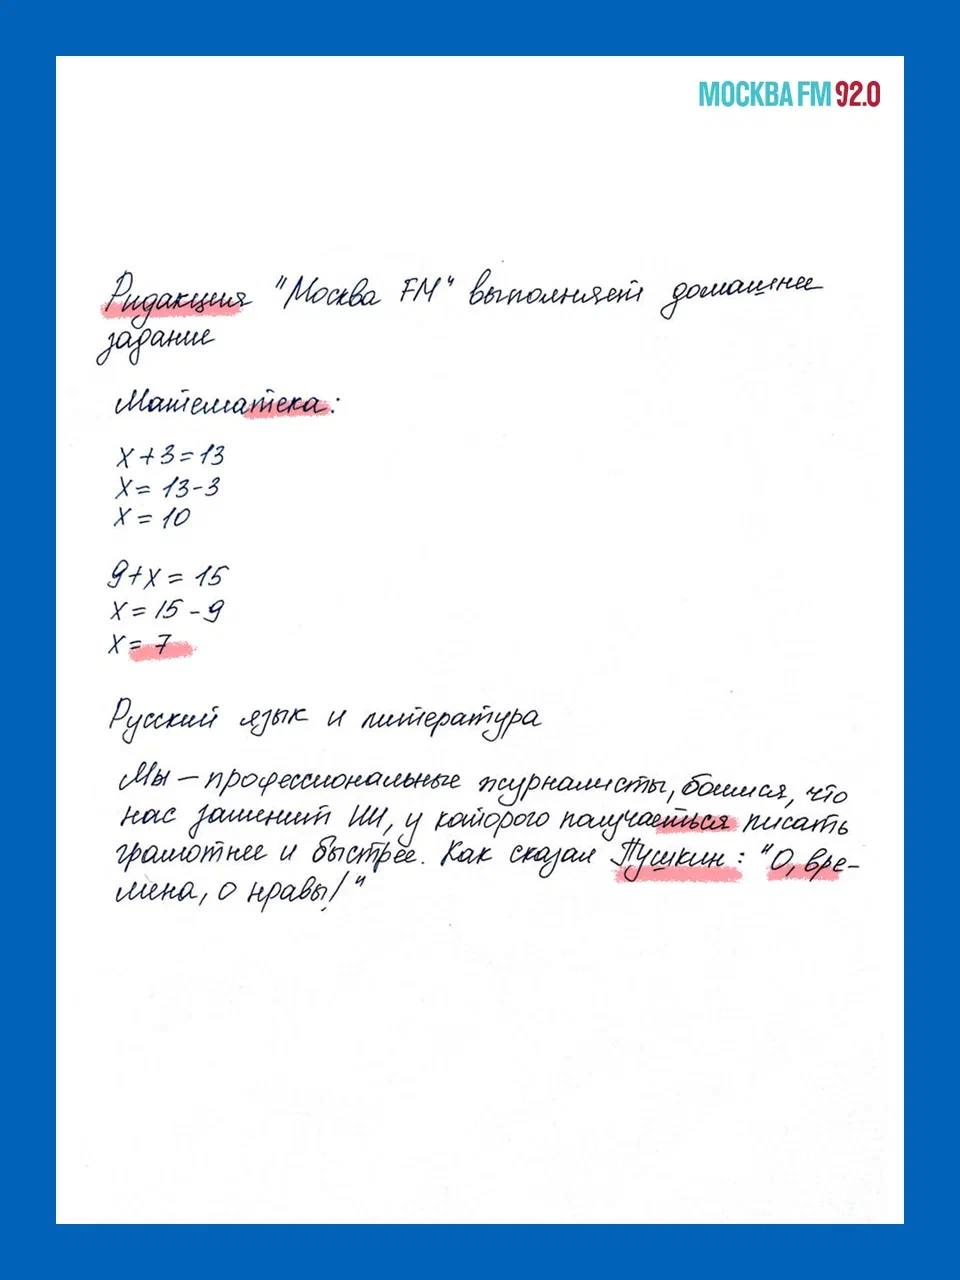 МОСКВА FM 92.0
Ридакция "Москва FM" выполняет домашнее
задание
Математека:
x+3=13
x= 13-3
x = 10
9+x = 15
x = 15 - 9
x = 7
Русский язык и литература
Мы — профессиональные журналисты, боимся, что
нас заменит ИИ, у которого получаеться писать
грамотнее и быстрее. Как сказал Пушкин: "О, вре-
мена, о нравы!"